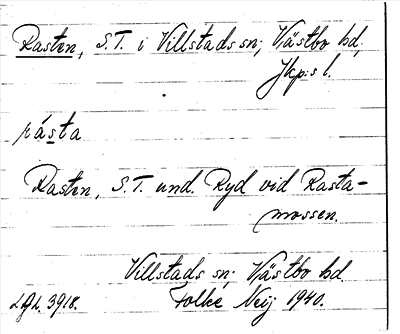 Rasten, S.T. i Villstads sn; Västbo hd,
Jkp:s l.
rásta
Rasten, S.T. und. Ryd vid Rasta-
mossen.
Villstads sn; Västbo hd.
Folke Neij 1940.